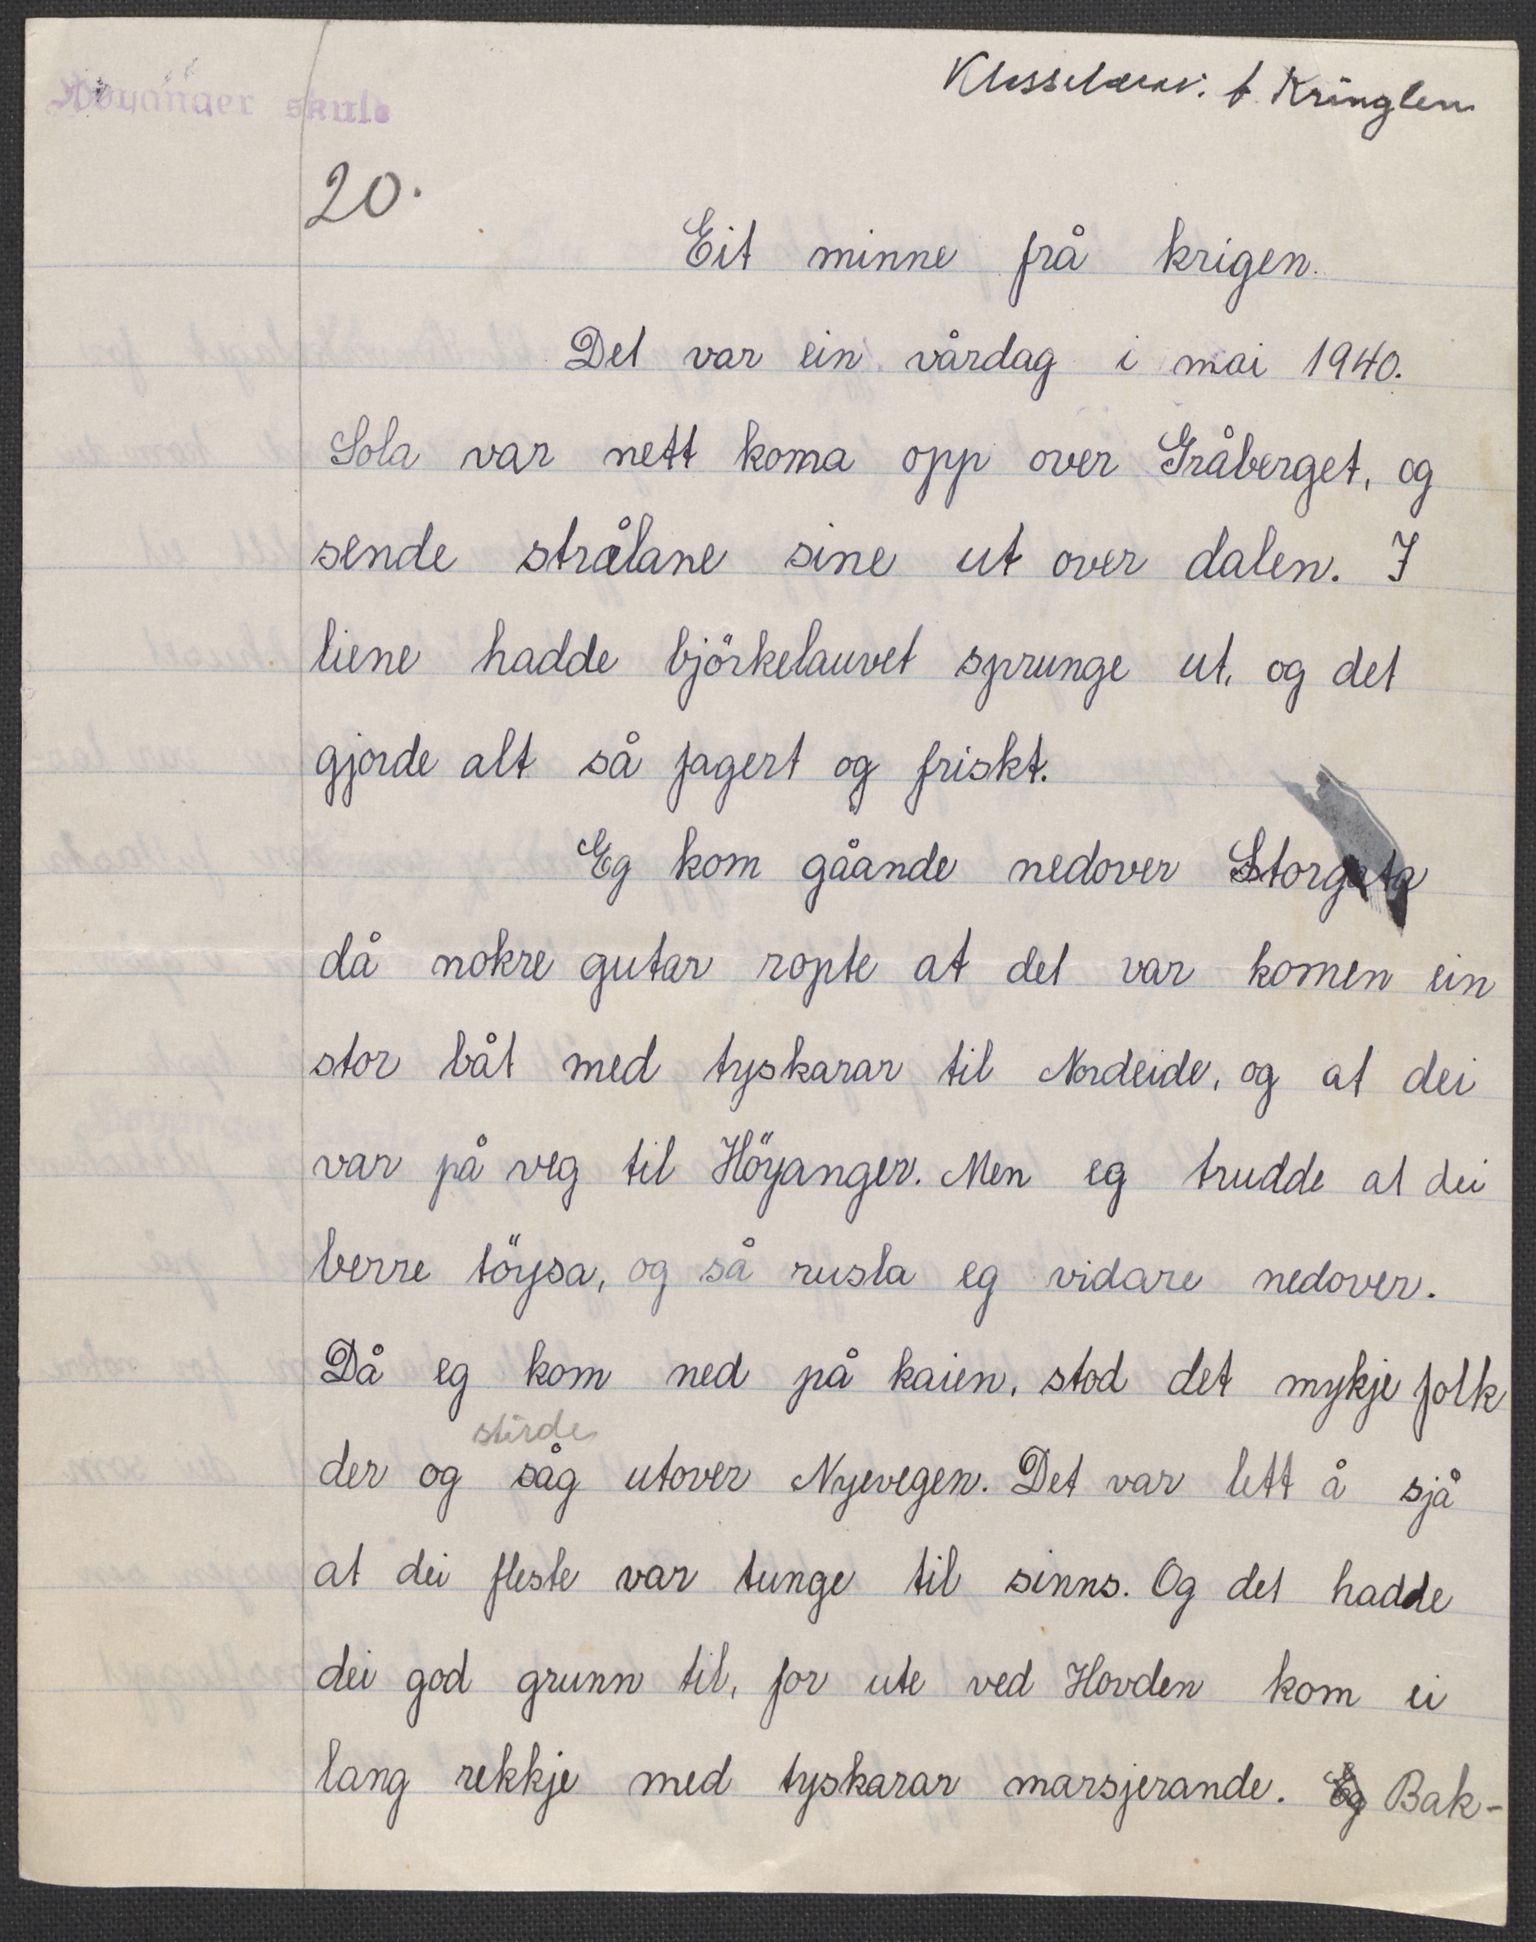 Höyanger skule
Kringlen
20.
Eit minne frå krigen.
Det var ein vårdag i mai 1940.
Sola var nett koma opp over Gråberget, og
sende strålane sine ut over dalen. I
liene hadde björkelauvet sprunge ut, og det
gjorde alt så fagert og friskt.
Eg kom gåande nedover Storgata
då nokre gutar ropte at det var komen ein
stor båt med tyskarar til Nordeide, og at dei
var på veg til Höyanger. Men eg trudde at dei
berre töysa, og så rusla eg vidare nedover.
Då eg kom ned på kaien, stod det mykje folk
stirde
der og såg utover Nyevegen. Det var lett å sjå
at dei fleste var tunge til sinns. Og det hadde
dei god grunn til, for ute ved Hovden kom ei
lang rekkje med tyskarar marsjerande. Eg Bak-